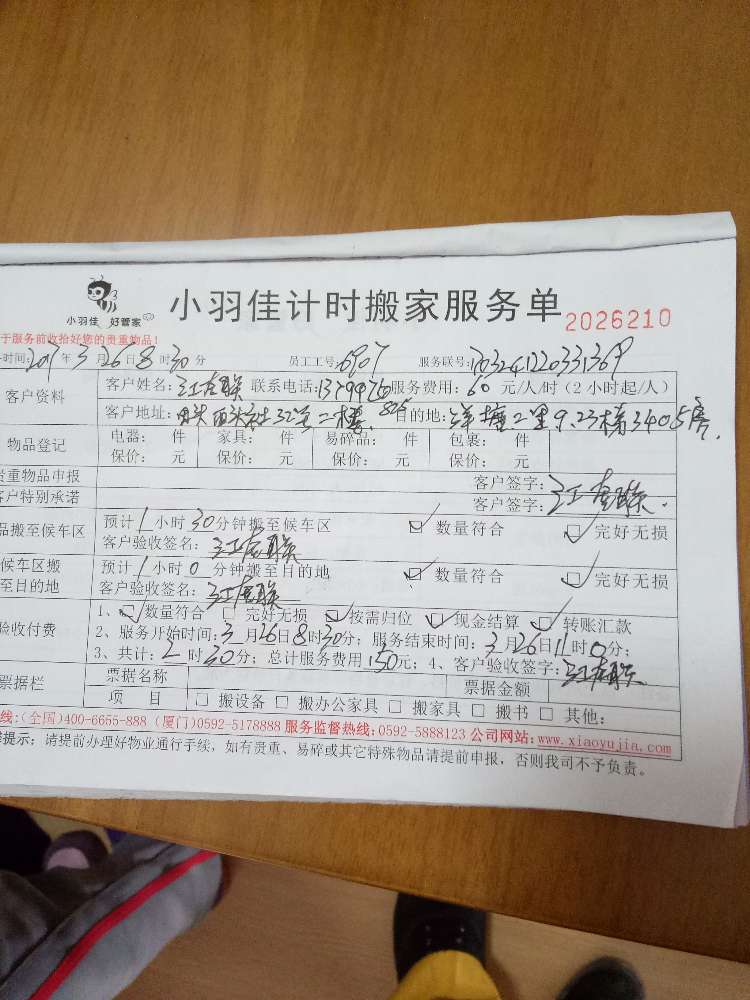 小羽佳 好管家
小羽佳计时搬家服务单 2026210
于服务前收拾好您的贵重物品！
时间: 年3月26日8时30分 员工工号: 6907 服务联号:
客户资料 客户姓名: 联系电话: 服务费用: 60 元/人/时（2小时起/人）
客户地址: 二楼 目的地: 洋塘二里 9.23梯3405房
物品登记 电器: 件 家具: 件 易碎品: 件 包裹: 件
保价: 元 保价: 元 保价: 元 保价: 元
贵重物品申报 客户签字:
客户特别承诺 客户签字:
品搬至候车区 预计1小时30分钟搬至候车区 ☑ 数量符合 ☑ 完好无损
客户验收签名:
候车区搬至目的地 预计1小时0分钟搬至目的地 ☑ 数量符合 ☑ 完好无损
客户验收签名:
验收付费 1、☑数量符合 □完好无损 ☑按需归位 ☑现金结算 ☑转账汇款
2、服务开始时间: 3月26日8时30分; 服务结束时间: 3月26日11时0分;
3、共计: 2时30分; 总计服务费用150元; 4、客户验收签字:
票据栏 票据名称 票据金额
项 目 □ 搬设备 □ 搬办公家具 □ 搬家具 □ 搬书 □ 其他:
线:(全国)400-6655-888 (厦门)0592-5178888 服务监督热线: 0592-5888123 公司网站: www.xiaoyujia.com
提示: 请提前办理好物业通行手续, 如有贵重、易碎或其它特殊物品请提前申报, 否则我司不予负责。